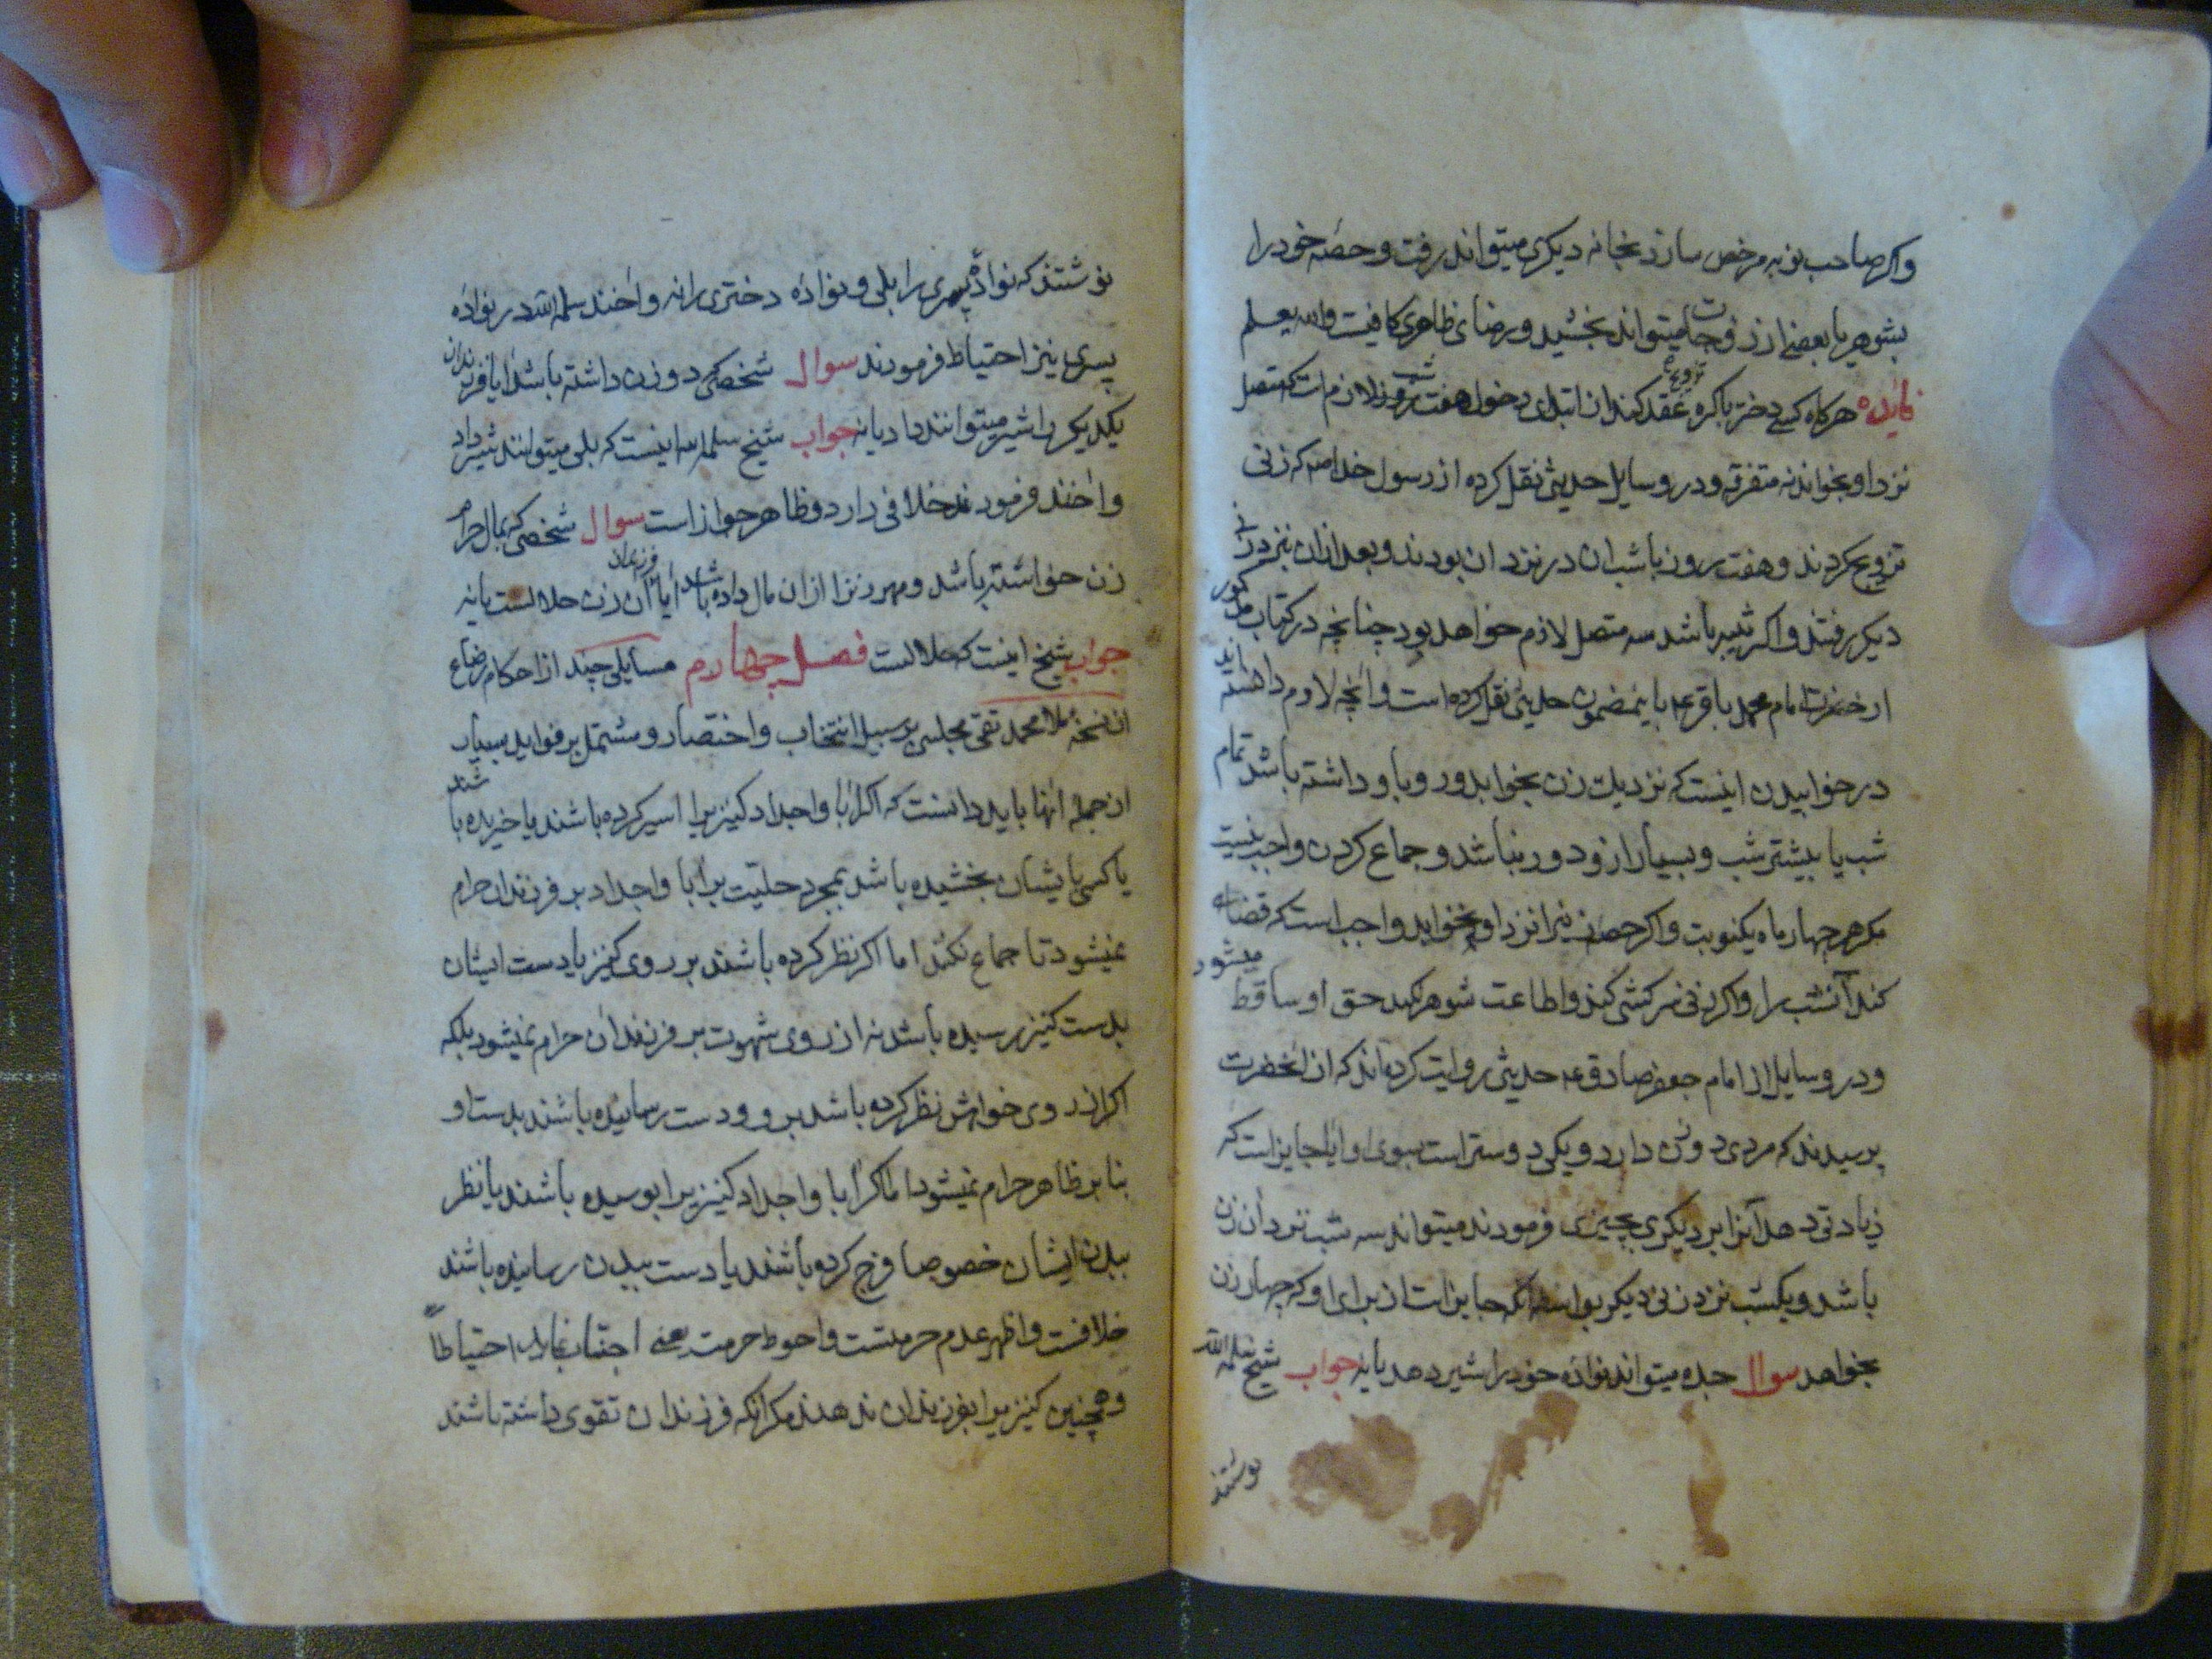 واکر صاحب نوبه مرخص سازد بخانه دیکری میتواند رفت و حصه خود را
بشوهر یا بعضی از زوجات میتواند بخشید و رضای ظاهری کافیست والله یعلم
فایده هرکاه کسی دختر باکره عقد کند از ابتدای دخول هفت شب لازم است که متصل
نزد او بخوابد نه متفرقه و در وسایل حدیثی نقل کرده از رسول خدا که زنی
تزویج کردند و هفت روز با شبان در نزد ان بودند و بعد ازان بنزد زنی
دیکر رفتند و اکر ثیبه باشد سه متصل لازم خواهد بود چنانچه در کتاب مذکور
از حضرت امام محمد باقر عه باینمضمون حدیثی نقل کرده است و آنچه لازم
در خوابیدن اینست که نزدیک زن بخوابد و رو باو داشته باشد تمام
شب یا بیشتر شب و بسیار ازو دور نباشد و جماع کردن واجب نیست
مکر هر چهار ماه یکنوبت و اکر نزد او نخوابد واجب است که قضای
کند آنشب را و اکر زنی سرکشی کند و اطاعت شوهر نکند حق او ساقط میشود
و در وسایل از امام جعفر صادق عه حدیثی روایت کرده‌اند که از انحضرت
پرسیدند که مردی دو زن دارد و یکی دوستر است بسوی او ایا جایز است که
زیادتی دهد آنرا بر دیکری بچیزی فرمودند میتواند سه شب نزد ان زن
باشد و یکشب نزد زن دیکر بواسطه آنکه جایز است از برای او که چهار زن
بخواهد سوال جده میتواند نواده خود را شیر دهد یا نه جواب شیخ سلمه الله
نوشتند
نوشتند که نواده پسری را بلی و نواده دختری را نه و اخند سلمه الله در نواده
پسری نیز احتیاط فرمودند سوال شخصی که دو زن داشته باشد ایا فرزندان
یکدیکر را شیر میتوانند داد یا نه جواب شیخ سلمه الله اینست که بلی میتوانند شیر داد
و اخند فرمودند خلافی دارد و ظاهر جواز است سوال شخصی که بمال حرام
زن خواسته باشد و مهر زنرا از ان مال داده باشد ایا فرزندان ان زن حلالست یا نه
جواب شیخ اینست که حلالست فصل چهارم مسایلی چند از احکام رضاع
از نسخه ملا محمد تقی مجلسی بر سبیل انتخاب و اختصار و مشتمل بر فواید بسیار
از جمله انها باید دانست که اکر ابا و اجداد کنیزیرا اسیر کرده باشند یا خریده باشند
یا کسی بایشان بخشیده باشد بمجرد حلیت بر ابا و اجداد بر فرزندان حرام
نمیشود تا جماع نکنند اما اکر نظر کرده باشند بر روی کنیز یا دست ایشان
بدست کنیز رسیده باشد نه از روی شهوت بر فرزندان حرام نمیشود بلکه
اکر از روی خواهش نظر کرده باشد برو و دست رسانیده باشند بدست او
بنا بر ظاهر حرام نمیشود اما اکر ابا و اجداد کنیزیرا بوسیده باشند یا نظر
ببدن ایشان خصوصا فرج کرده باشند یا دست ببدن رسانیده باشند
خلافست و اظهر عدم حرمتست و احوط حرمت یعنی اجتناب نمایند احتیاطاً
و همچنین کنیزیرا بفرزندان ندهند مکر انکه فرزندان تقوی داشته باشند